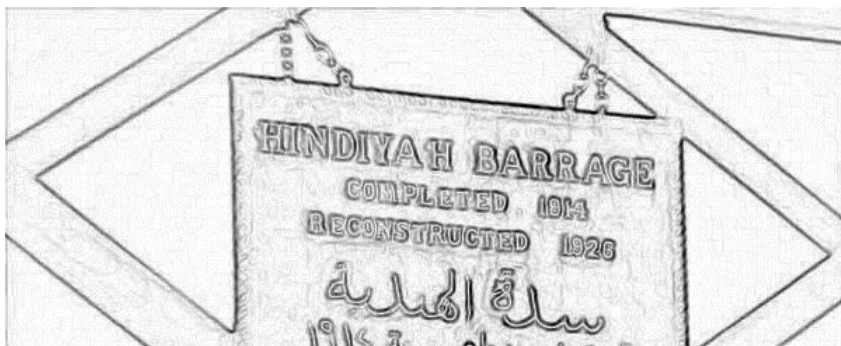 HINDIYAH BARRAGE
COMPLETED 1914
RECONSTRUCTED 1926
سدة الهندية
١٩١٤